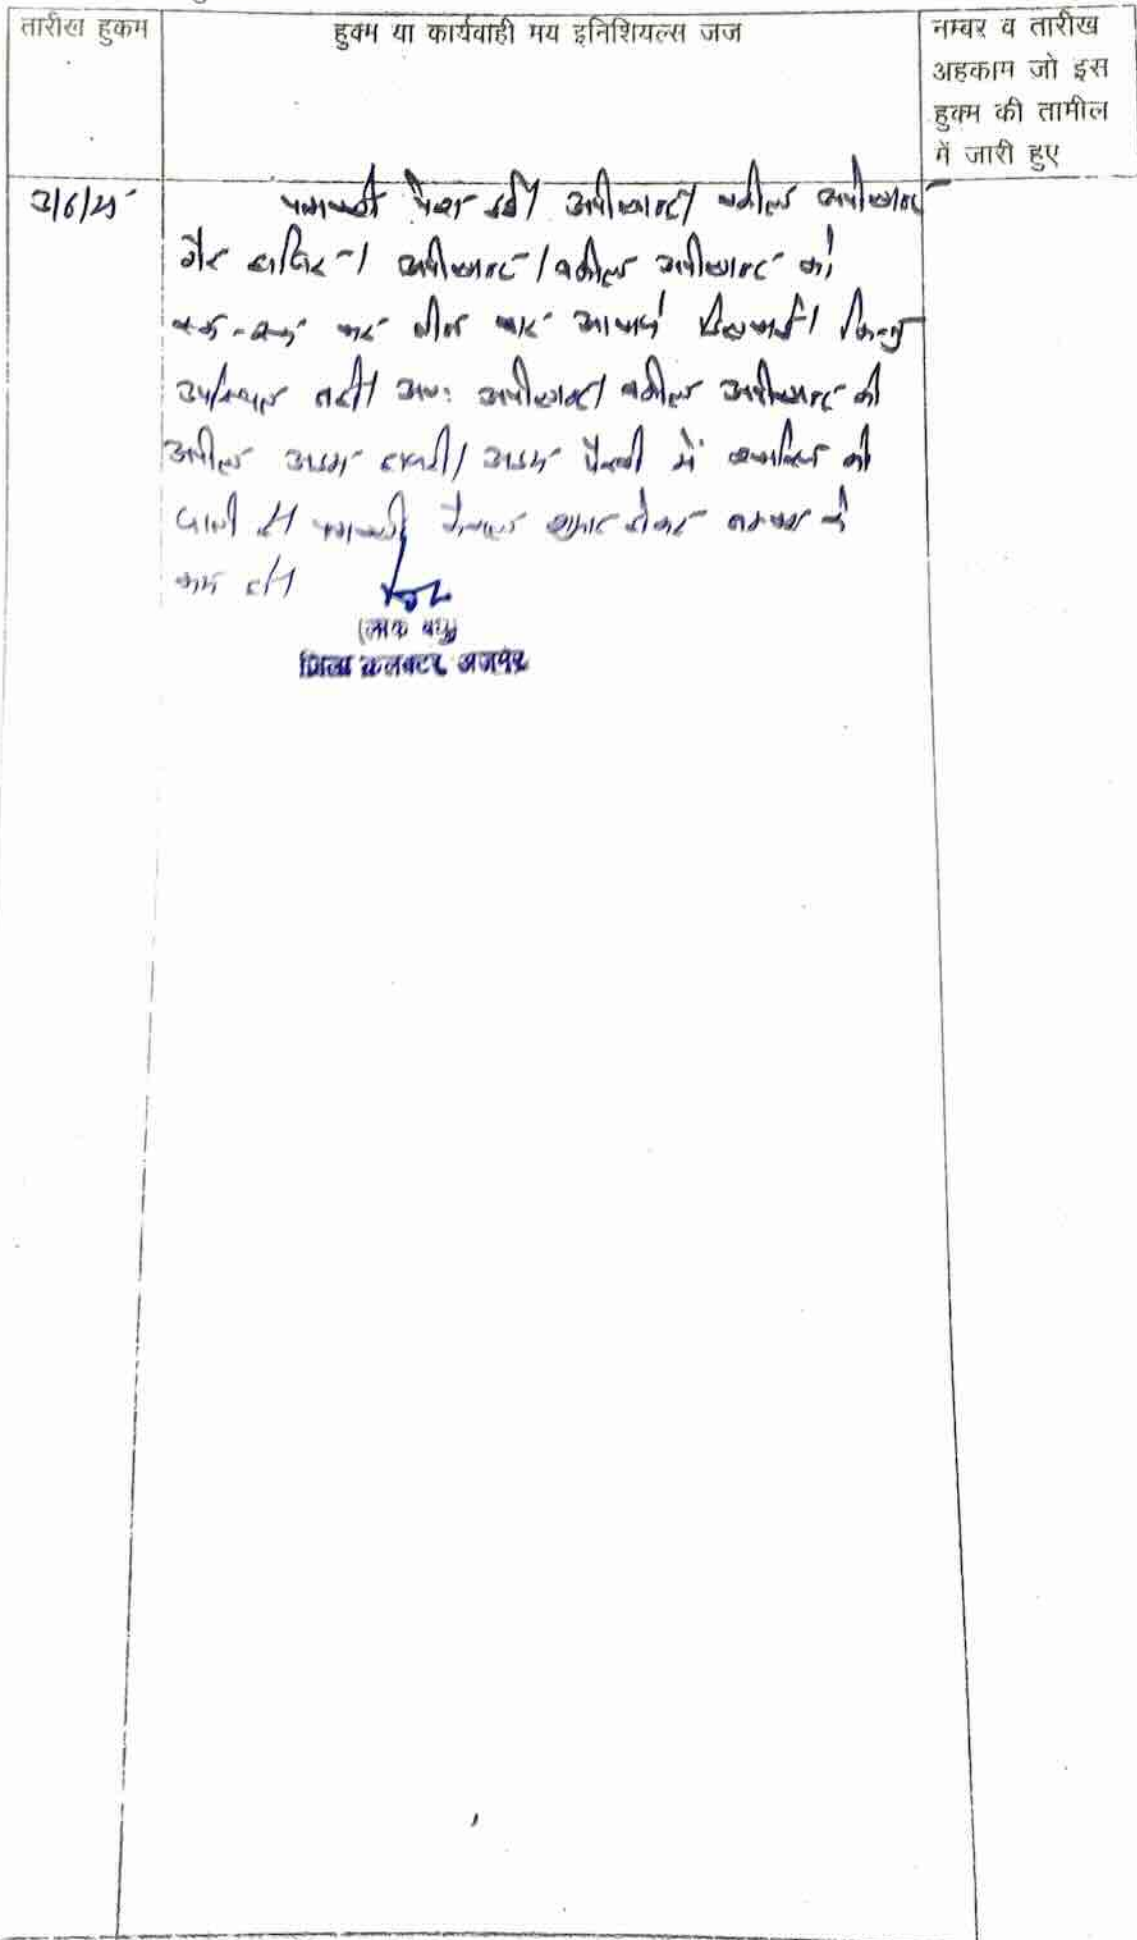 तारीख हुकम
हुक्म या कार्यवाही मय इनिशियल्स जज
नम्बर व तारीख
अहकाम जो इस
हुक्म की तामील
में जारी हुए
3/6/25
पत्रावली पेश हुई। अपीलान्ट/ वकील अपीलान्ट
गैर हाजिर। अपीलान्ट/वकील अपीलान्ट को
कर तीन बार आवाजें दिलवाई। किन्तु
उपस्थित नहीं। अतः अपीलान्ट/ वकील अपीलान्ट की
अपील अदम हाजरी/ अदम पैरवी में खारिज की
जाती है। पत्रावली फैसल शुमार होकर नम्बर से
कम हो।
(लोक बन्धु)
जिला कलक्टर, अजमेर